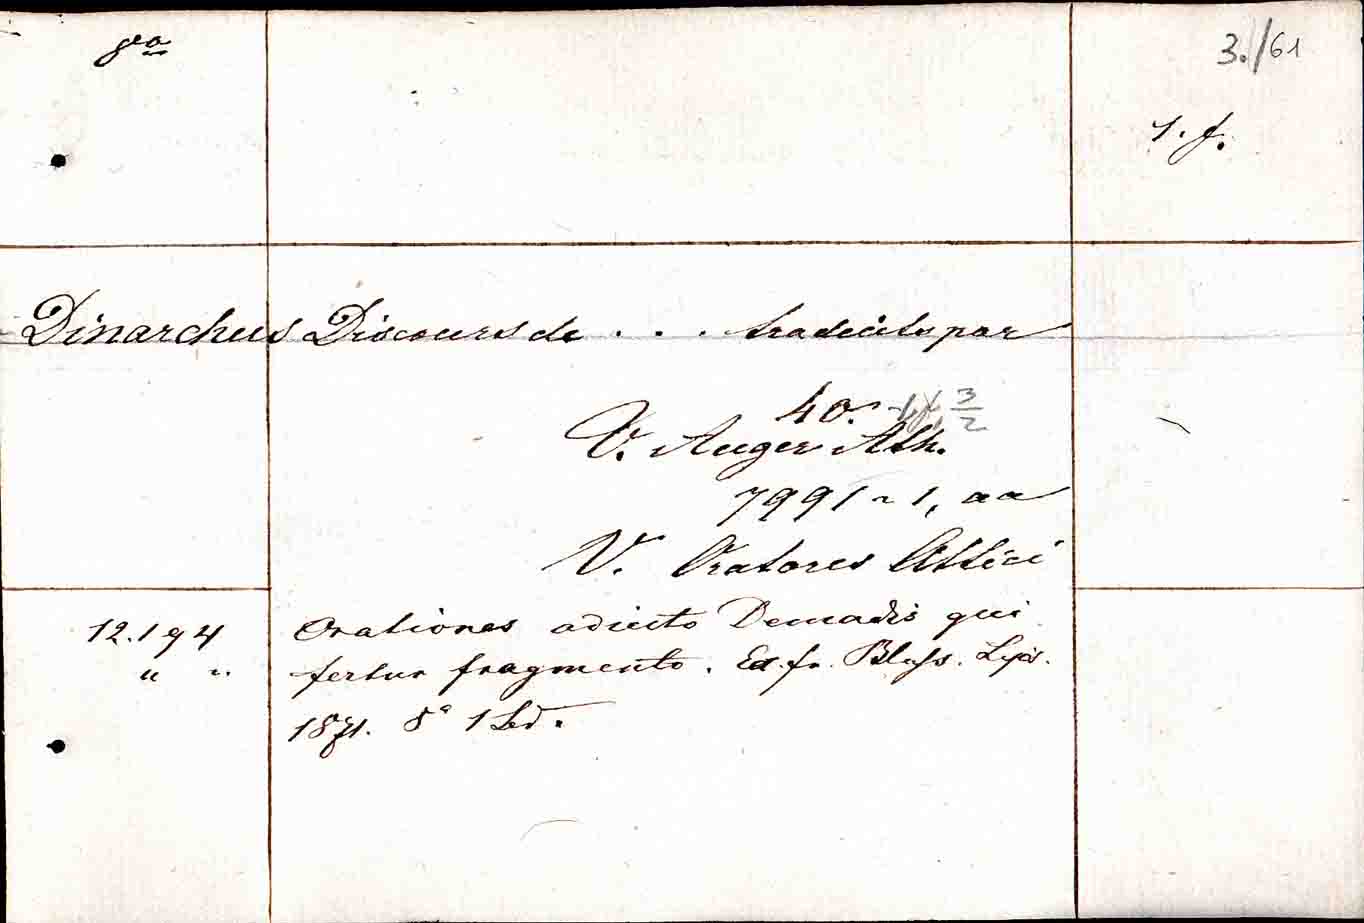 8vo
3./61
1. f.
Dinarchus Discours de . . . traduits par
40.
V. Auger Ath.
7991 ~ 1, aa
V. Oratores Attici
12.194 Orationes adiecto Demadis qui
" " fertur fragmento. Ed. fr. Blass. Lps.
1871. 8° 1 Bd.